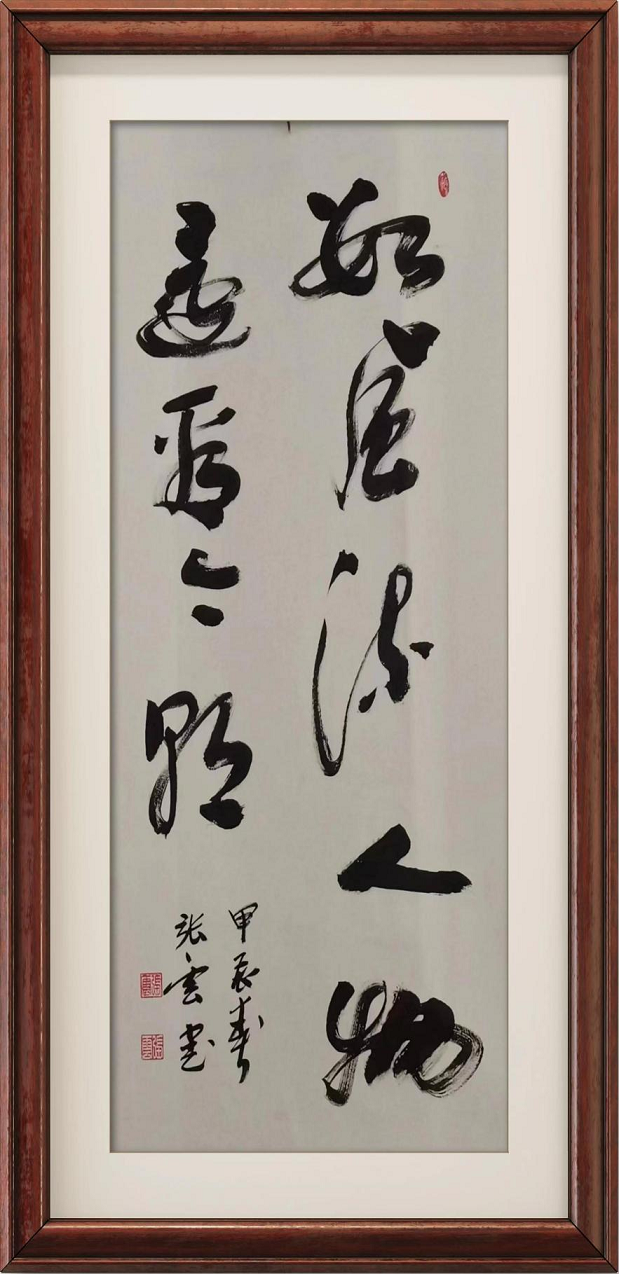 数风流人物
还看今朝
甲辰春
张云书